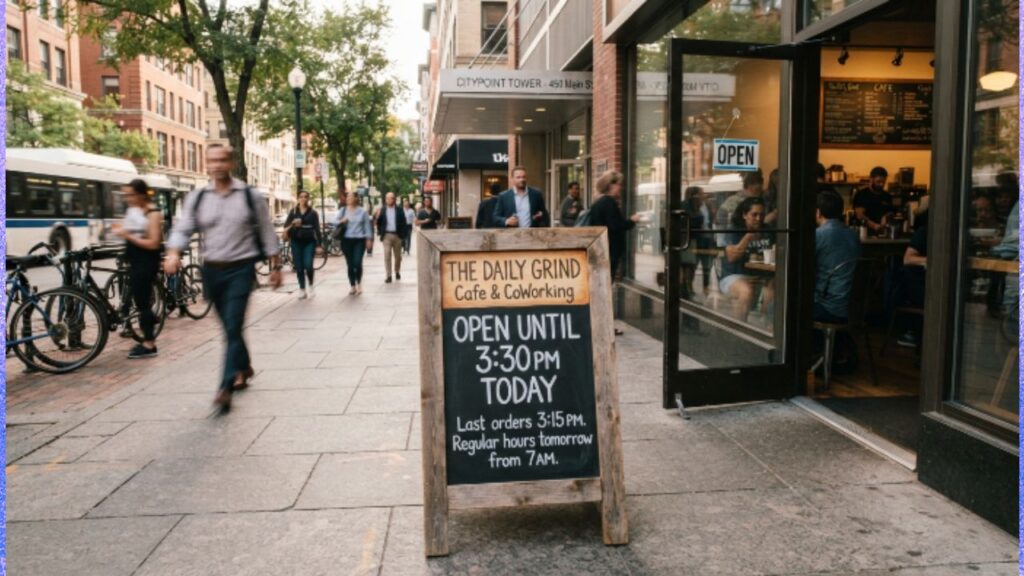 CITYPOINT TOWER - 451 Main St
OPEN
CAFE
THE DAILY GRIND
Cafe & CoWorking
OPEN UNTIL
3:30 PM
TODAY
Last orders 3:15 PM.
Regular hours tomorrow
from 7 AM.